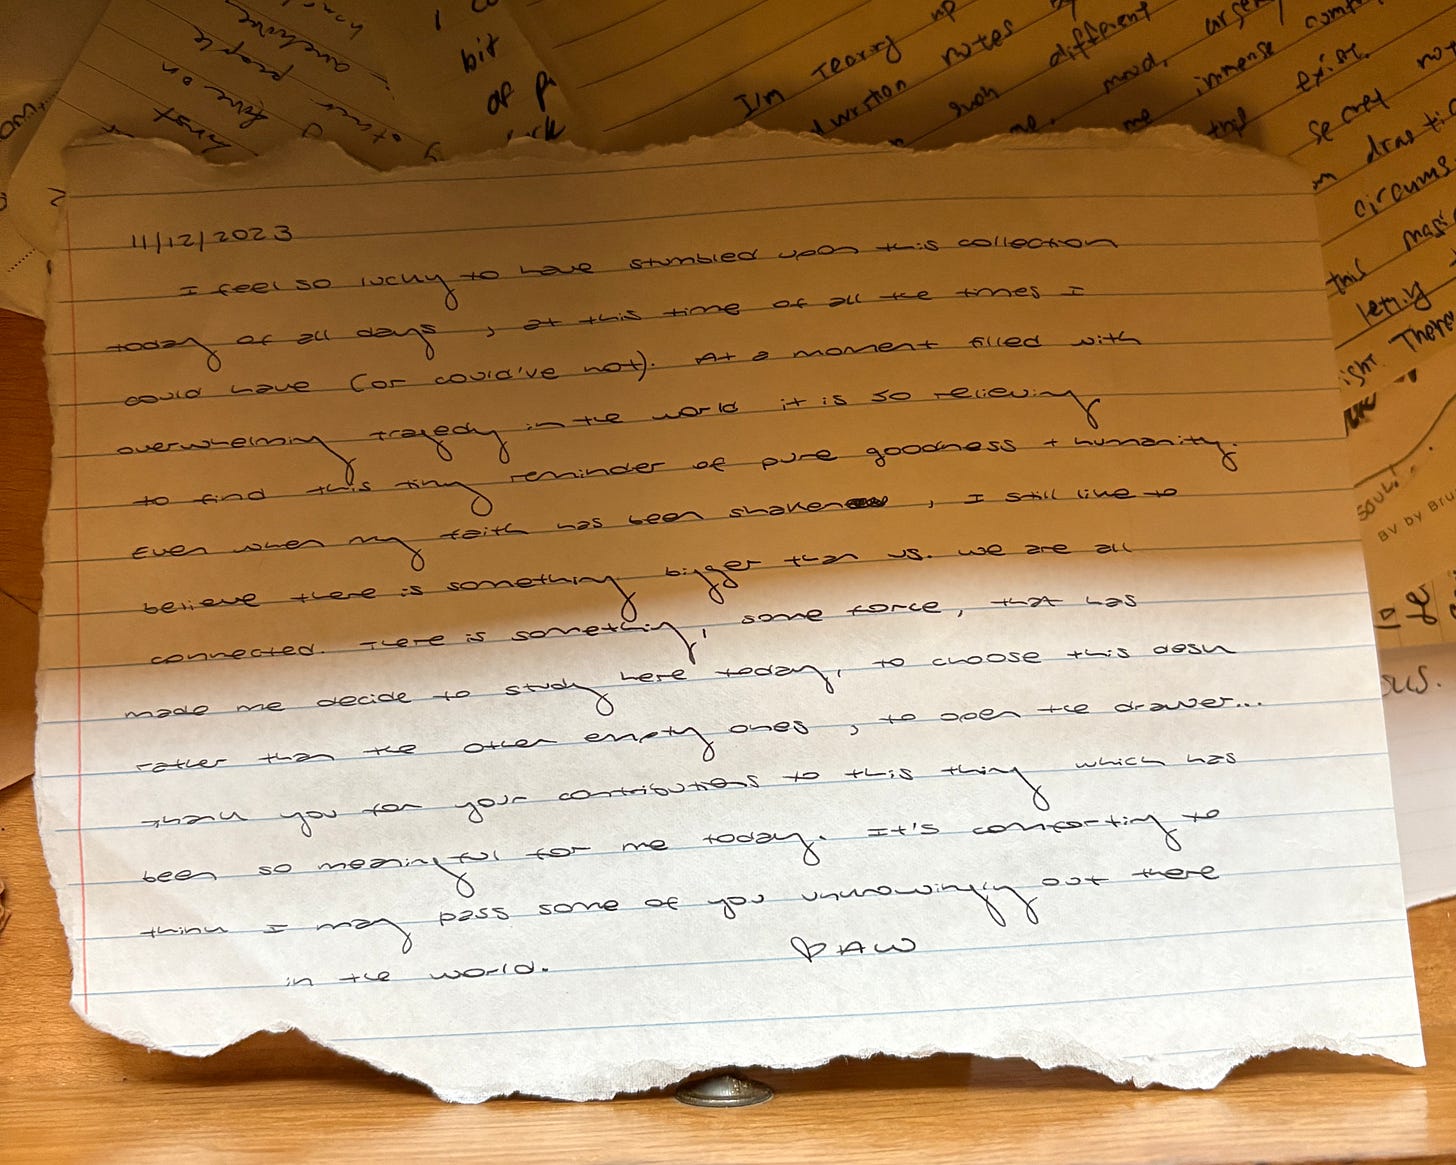 bit
I'm teary up
notes
different
immense
exist.
not
secret
circums
this
Thero
soul!
BV by Bru
sus.
11/12/2023
I feel so lucky to have stumbled upon this collection
today of all days, at this time of all the times I
could have (or could've not). At a moment filled with
overwhelming tragedy in the world it is so relieving
to find this tiny reminder of pure goodness + humanity.
Even when my faith has been shaken, I still like to
believe there is something bigger than us. we are all
connected. There is something, some force, that has
made me decide to study here today, to choose this desk
rather than the other empty ones, to open the drawer...
Thank you for your contributions to this thing which has
been so meaningful for me today. It's comforting to
think I may pass some of you unknowingly out there
in the world.
♡ AW